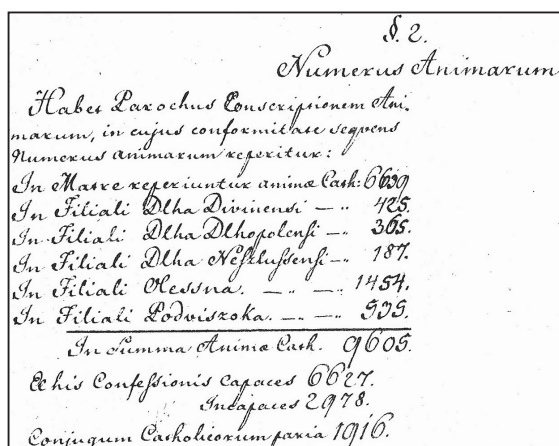 §. 2.
Numerus Animarum
Habet Parochus Conscriptionem Ani-
marum, in cujus conformitate sequens
Numerus animarum reperitur:
In Matre reperiuntur animæ Cath: 6639
In Filiali Dlha Divinensi — „ 425.
In Filiali Dlha Dlhopolensi — „ 365.
In Filiali Dlha Neszlussensi — „ 187.
In Filiali Olessna. — „ — „ 1454.
In Filiali Podviszoka. — „ — „ 535.
In Summa Animæ Cath. 9605.
Ex his Confessionis capaces 6627.
Incapaces 2978.
Conjugum Catholicorum paria 1916.